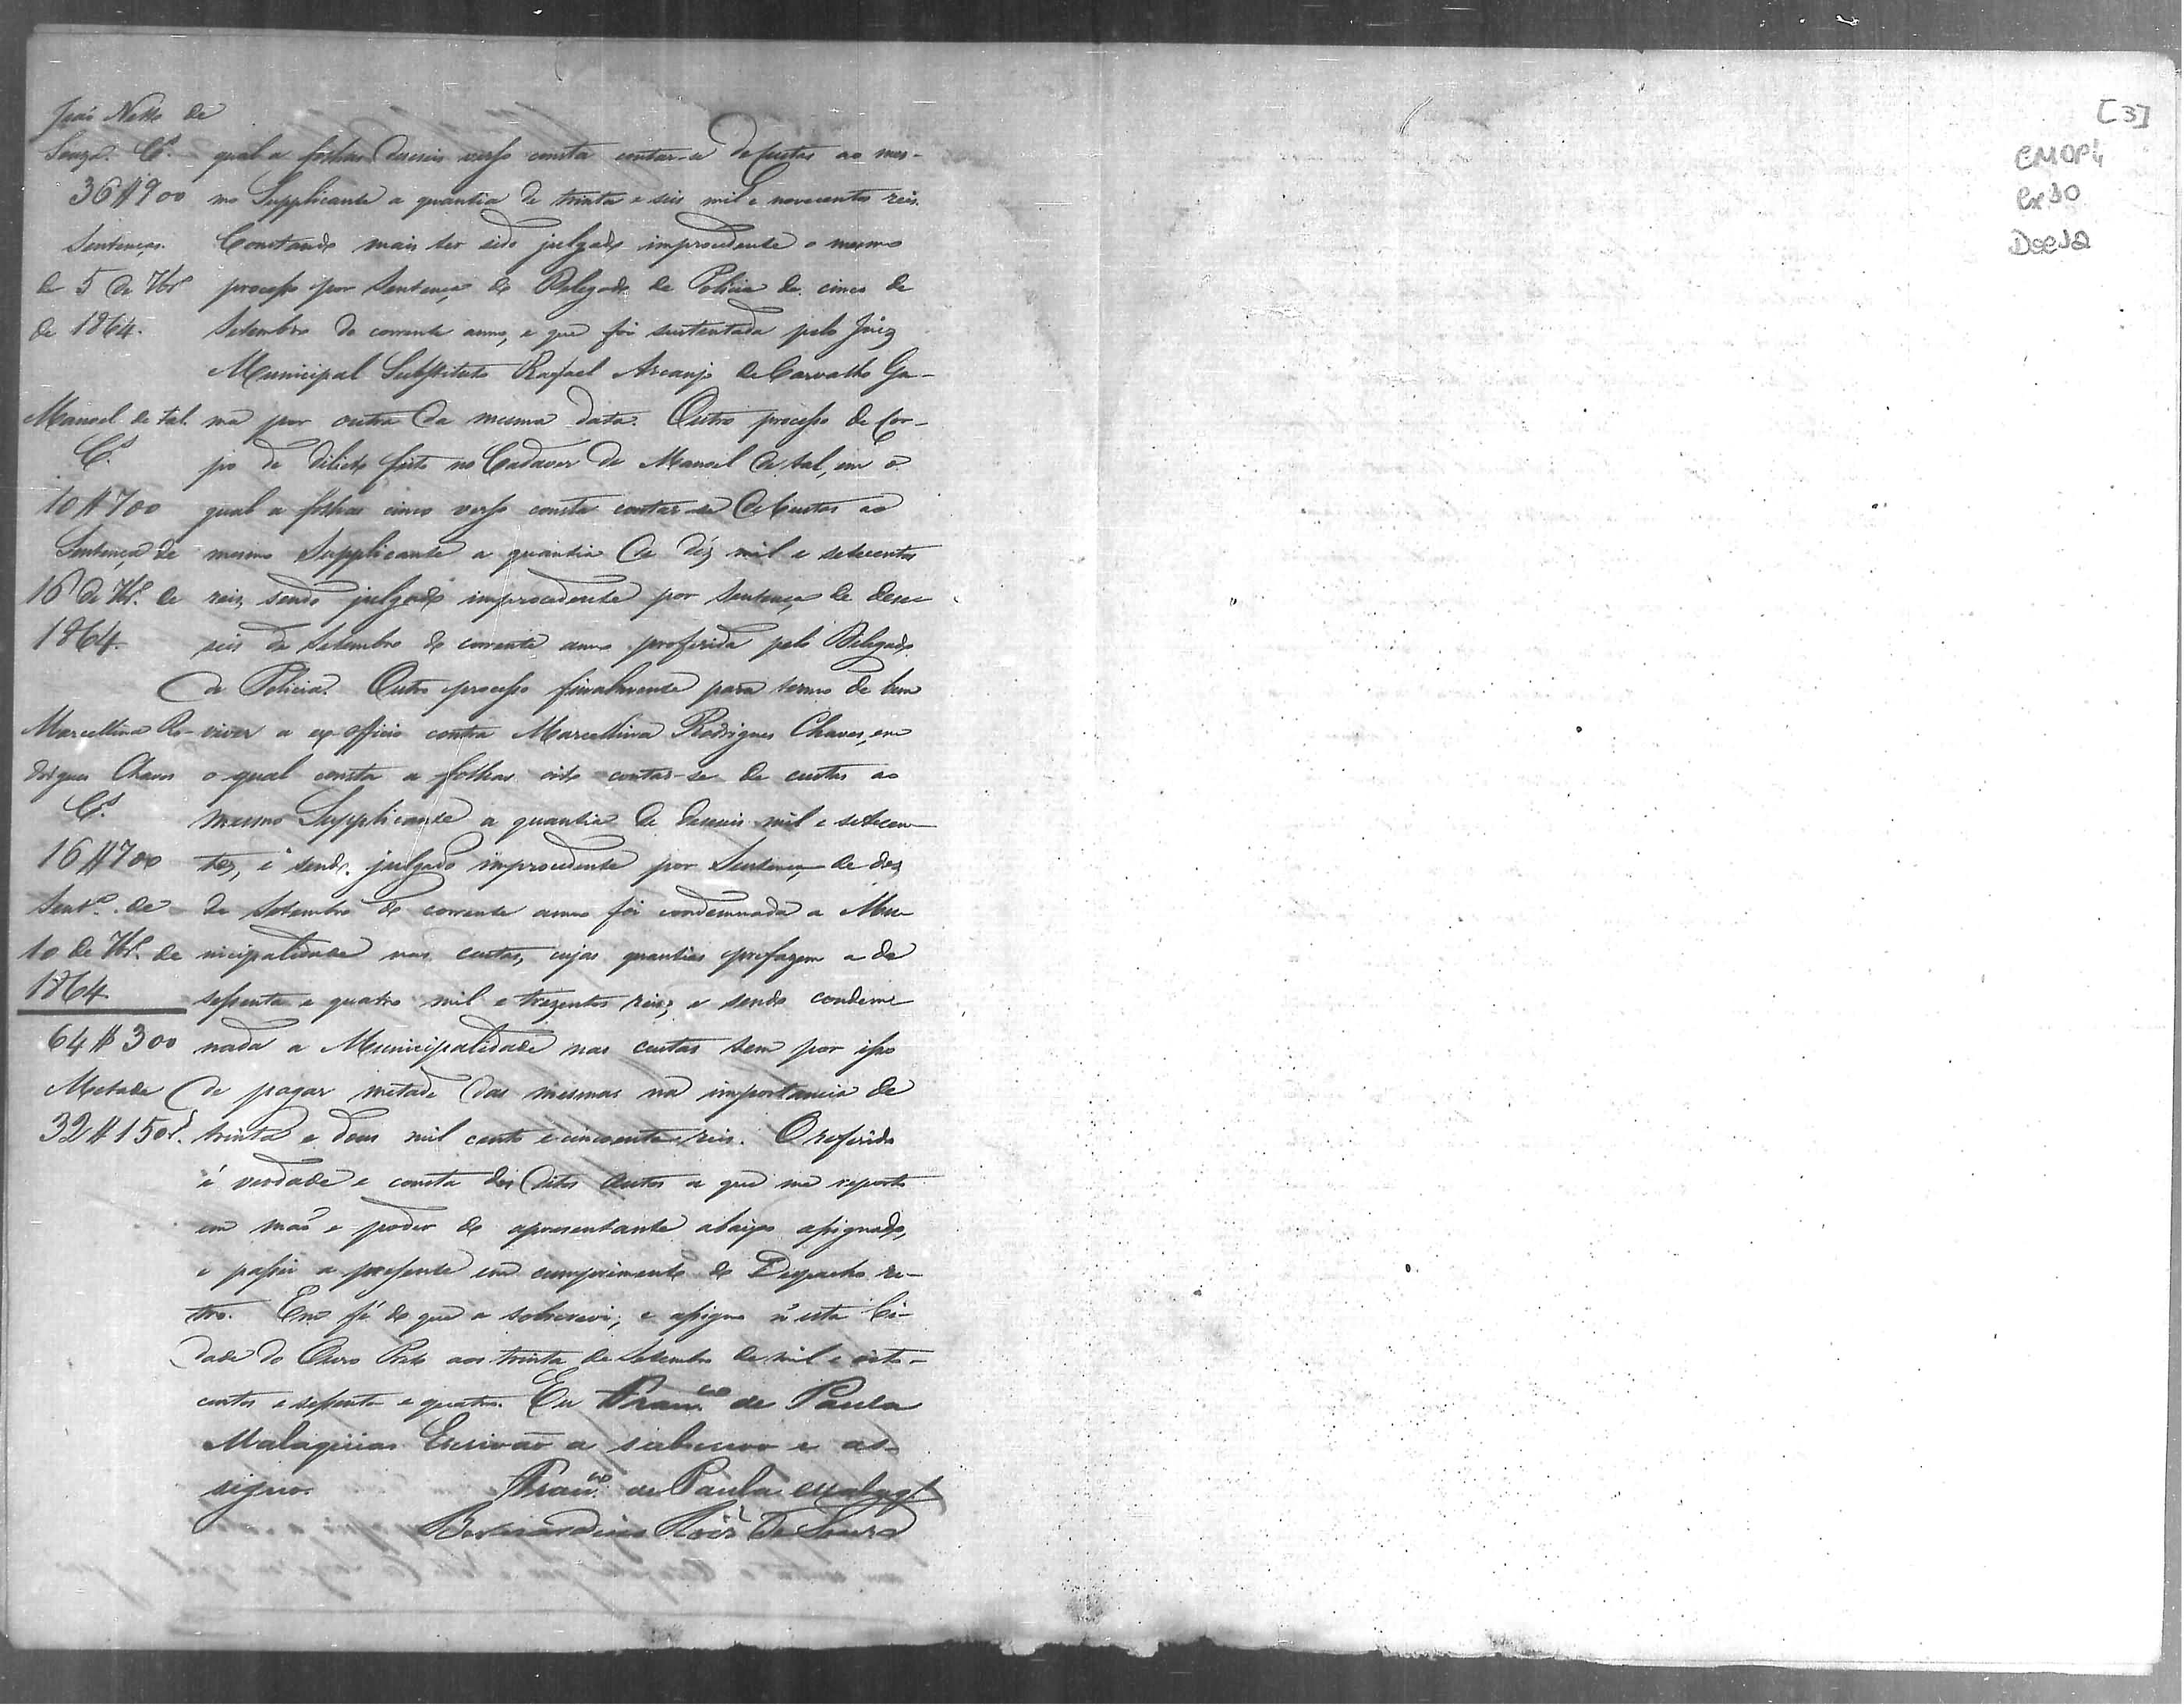 João Netto de
Souza. C.ˢ
36$900
Sentença
de 5 de 7br.º
de 1864.
Manoel de tal.
C.ˢ
10$700
Sentença de
16 de 7br.º de
1864.
Marcellina Ro-
drigues Chaves
C.ˢ
16$700
Sent.ª de
10 de 7br.º de
1864
64$300
Metade
32$150r.ˢ
qual a folhas deseseis verso consta contar-se de custas ao mes-
mo Supplicante a quantia de trinta e seis mil e novecentos reis.
Constando mais ter sido julgado improcedente o mesmo
processo por Sentença do Delegado de Policia de cinco de
Setembro do corrente anno, e que foi sustentada pelo Juiz
Municipal Substituto Rafael Arcanjo de Carvalho Ga-
ma por outra da mesma data. Outro processo de Cor-
po de dilicto feito no Cadaver de Manoel de tal, em o
qual a folhas cinco verso consta contar-se de Custas ao
mesmo Supplicante a quantia de déz mil e setecentos
reis, sendo julgado improcedente por Sentença de dese-
seis de Setembro do corrente anno proferida pelo Delegado
de Policia. Outro processo finalmente para termo de bem
viver a ex officio contra Marcellina Rodrigues Chaves, em
o qual consta a folhas oito contar-se de custas ao
mesmo Supplicante a quantia de deseseis mil e setecen-
tos, e sendo julgado improcedente por Sentença de dez
de Setembro do corrente anno foi condemnada a Mu-
nicipalidade nas custas, cujas quantias prefazem a de
sessenta e quatro mil e trezentos reis; e sendo condem-
nada a Municipalidade nas custas tem por isso
de pagar metade das mesmas na importancia de
trinta e dous mil cento e cincoenta reis. O referido
é verdade e consta dos ditos autos a que me reporto
em maõ e poder do apresentante abaixo assignado,
e passei a presente em cumprimento do Despacho re-
tro. Em fé do que a sobrescrevi, e assigno n'esta Ci-
dade do Ouro Preto aos trinta de Setembro de mil e oito-
centos e sessenta e quatro. Eu Fran.ᶜᵒ de Paula
Malaquias Escrivaõ a subscrevo e as-
signo.
Fran.ᶜᵒ de Paula Malaq.ˢ
Bernardino Roiz de Souza
[3]
CMOP4
Cx30
Doc12